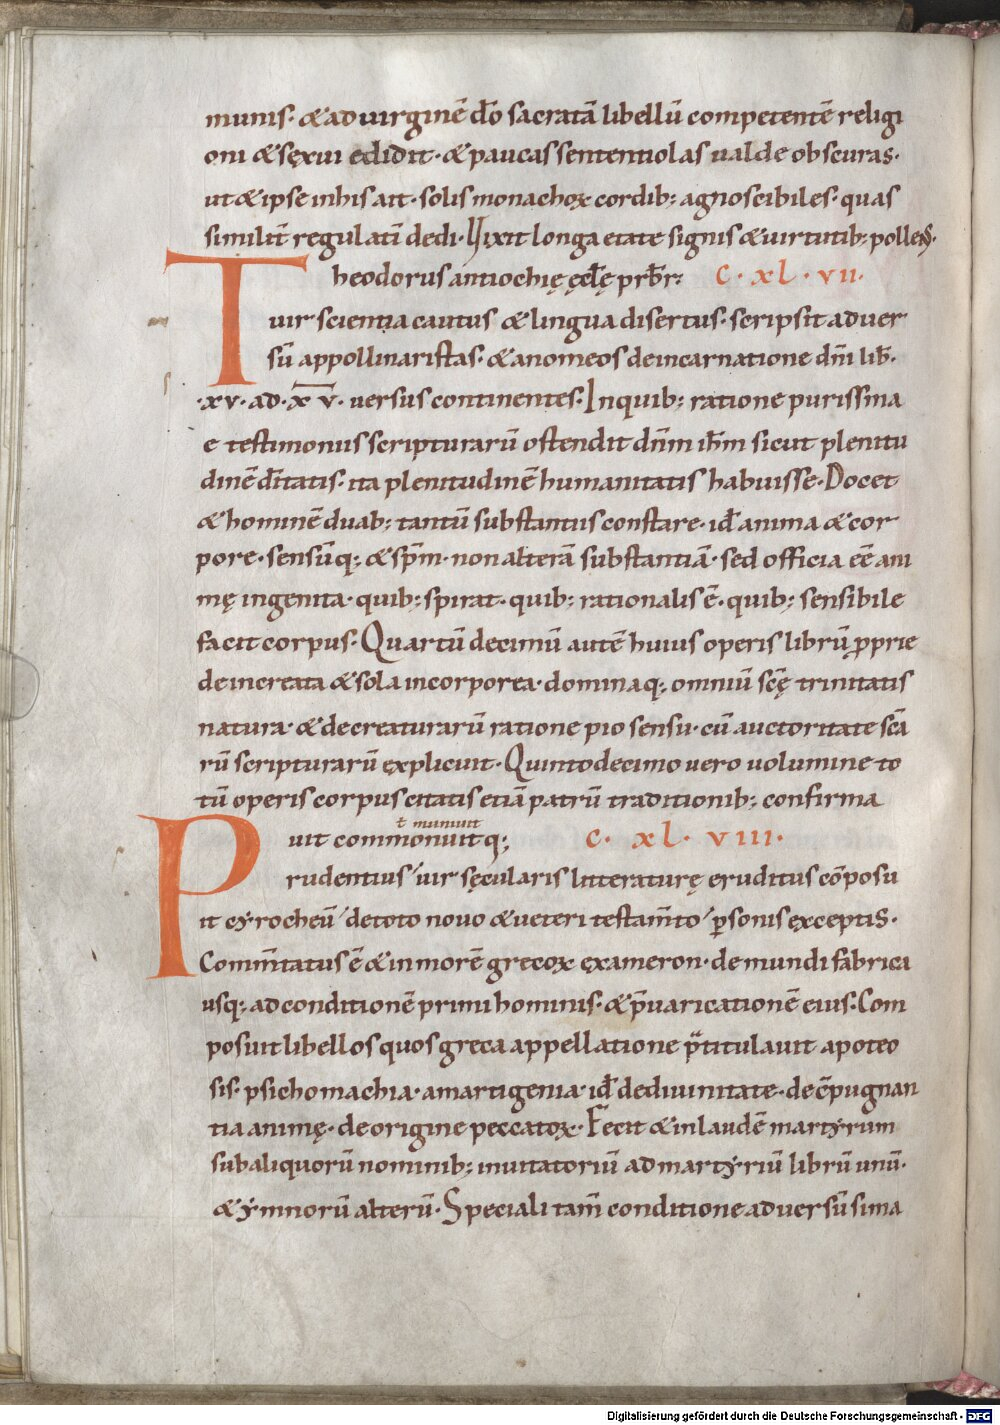 munis· & ad uirginē dō sacratā libellū competentē religi
oni & sęxui edidit· & paucas sententiolas ualde obscuras·
ut & ipse in his ait· solis monachoꝝ cordib; agnoscibiles· quas
similit̄ regulatī dedi· Uixit longa etate signis & uirtutib; pollens·
Theodorus antiochię ęcl̄ę prb̄r; C· XL· VII·
uir scientia cautus & lingua disertus· scripsit aduer
sū appollinaristas· & anomeos de incarnatione dn̄i lib̄·
·xv· ad· x̅v̅· uersus continentes· In quib; ratione purissima
e testimoniis scripturarū ostendit dn̄m ih̄m sicut plenitu
dinē dēitatis· ita plenitudinē humanitatis habuisse· Docet
& hominē duab; tantū substantiis constare· id ē anima & cor
pore· sensūq; & sp̄m· non alterā substantiā· sed officia eē ani
mę ingenita· quib; spirat· quib; rationalis ē· quib; sensibile
facit corpus· Quartū decimū autē huius operis librū ꝓprie
de increata & sola incorporea· dominaq; omniū scę̄ trinitatis
natura· & de creaturarū ratione pio sensu· cū auctoritate scā
rū scripturarū explicuit· Quinto decimo uero uolumine to
tū operis corpus citatis etiā patrū traditionib; confirma
ł muniuit
uit commonuitq; C· XL· VIII·
Prudentius uir sęcularis litteraturę eruditus cōposu
it cyrocheū de toto nouo & ueteri testam̄to ꝑsonis exceptis·
Comm̄tatus ē & in morē grecoꝝ exameron· de mundi fabrica
usq; ad conditionē primi hominis· & p̄uaricationē eius· Com
posuit libellos quos greca appellatione p̄titulauit apoteo
sis· psichomachia· amartigenia· id ē de diuinitate· de cōpugnan
tia animę· de origine peccatoꝝ· Fecit & in laudē martyrum
sub aliquorū nominib; inuitatoriū ad martyriū librū unū·
& ymnorū alterū· Speciali tam̄ conditione aduersū sima
Digitalisierung gefördert durch die Deutsche Forschungsgemeinschaft - DFG